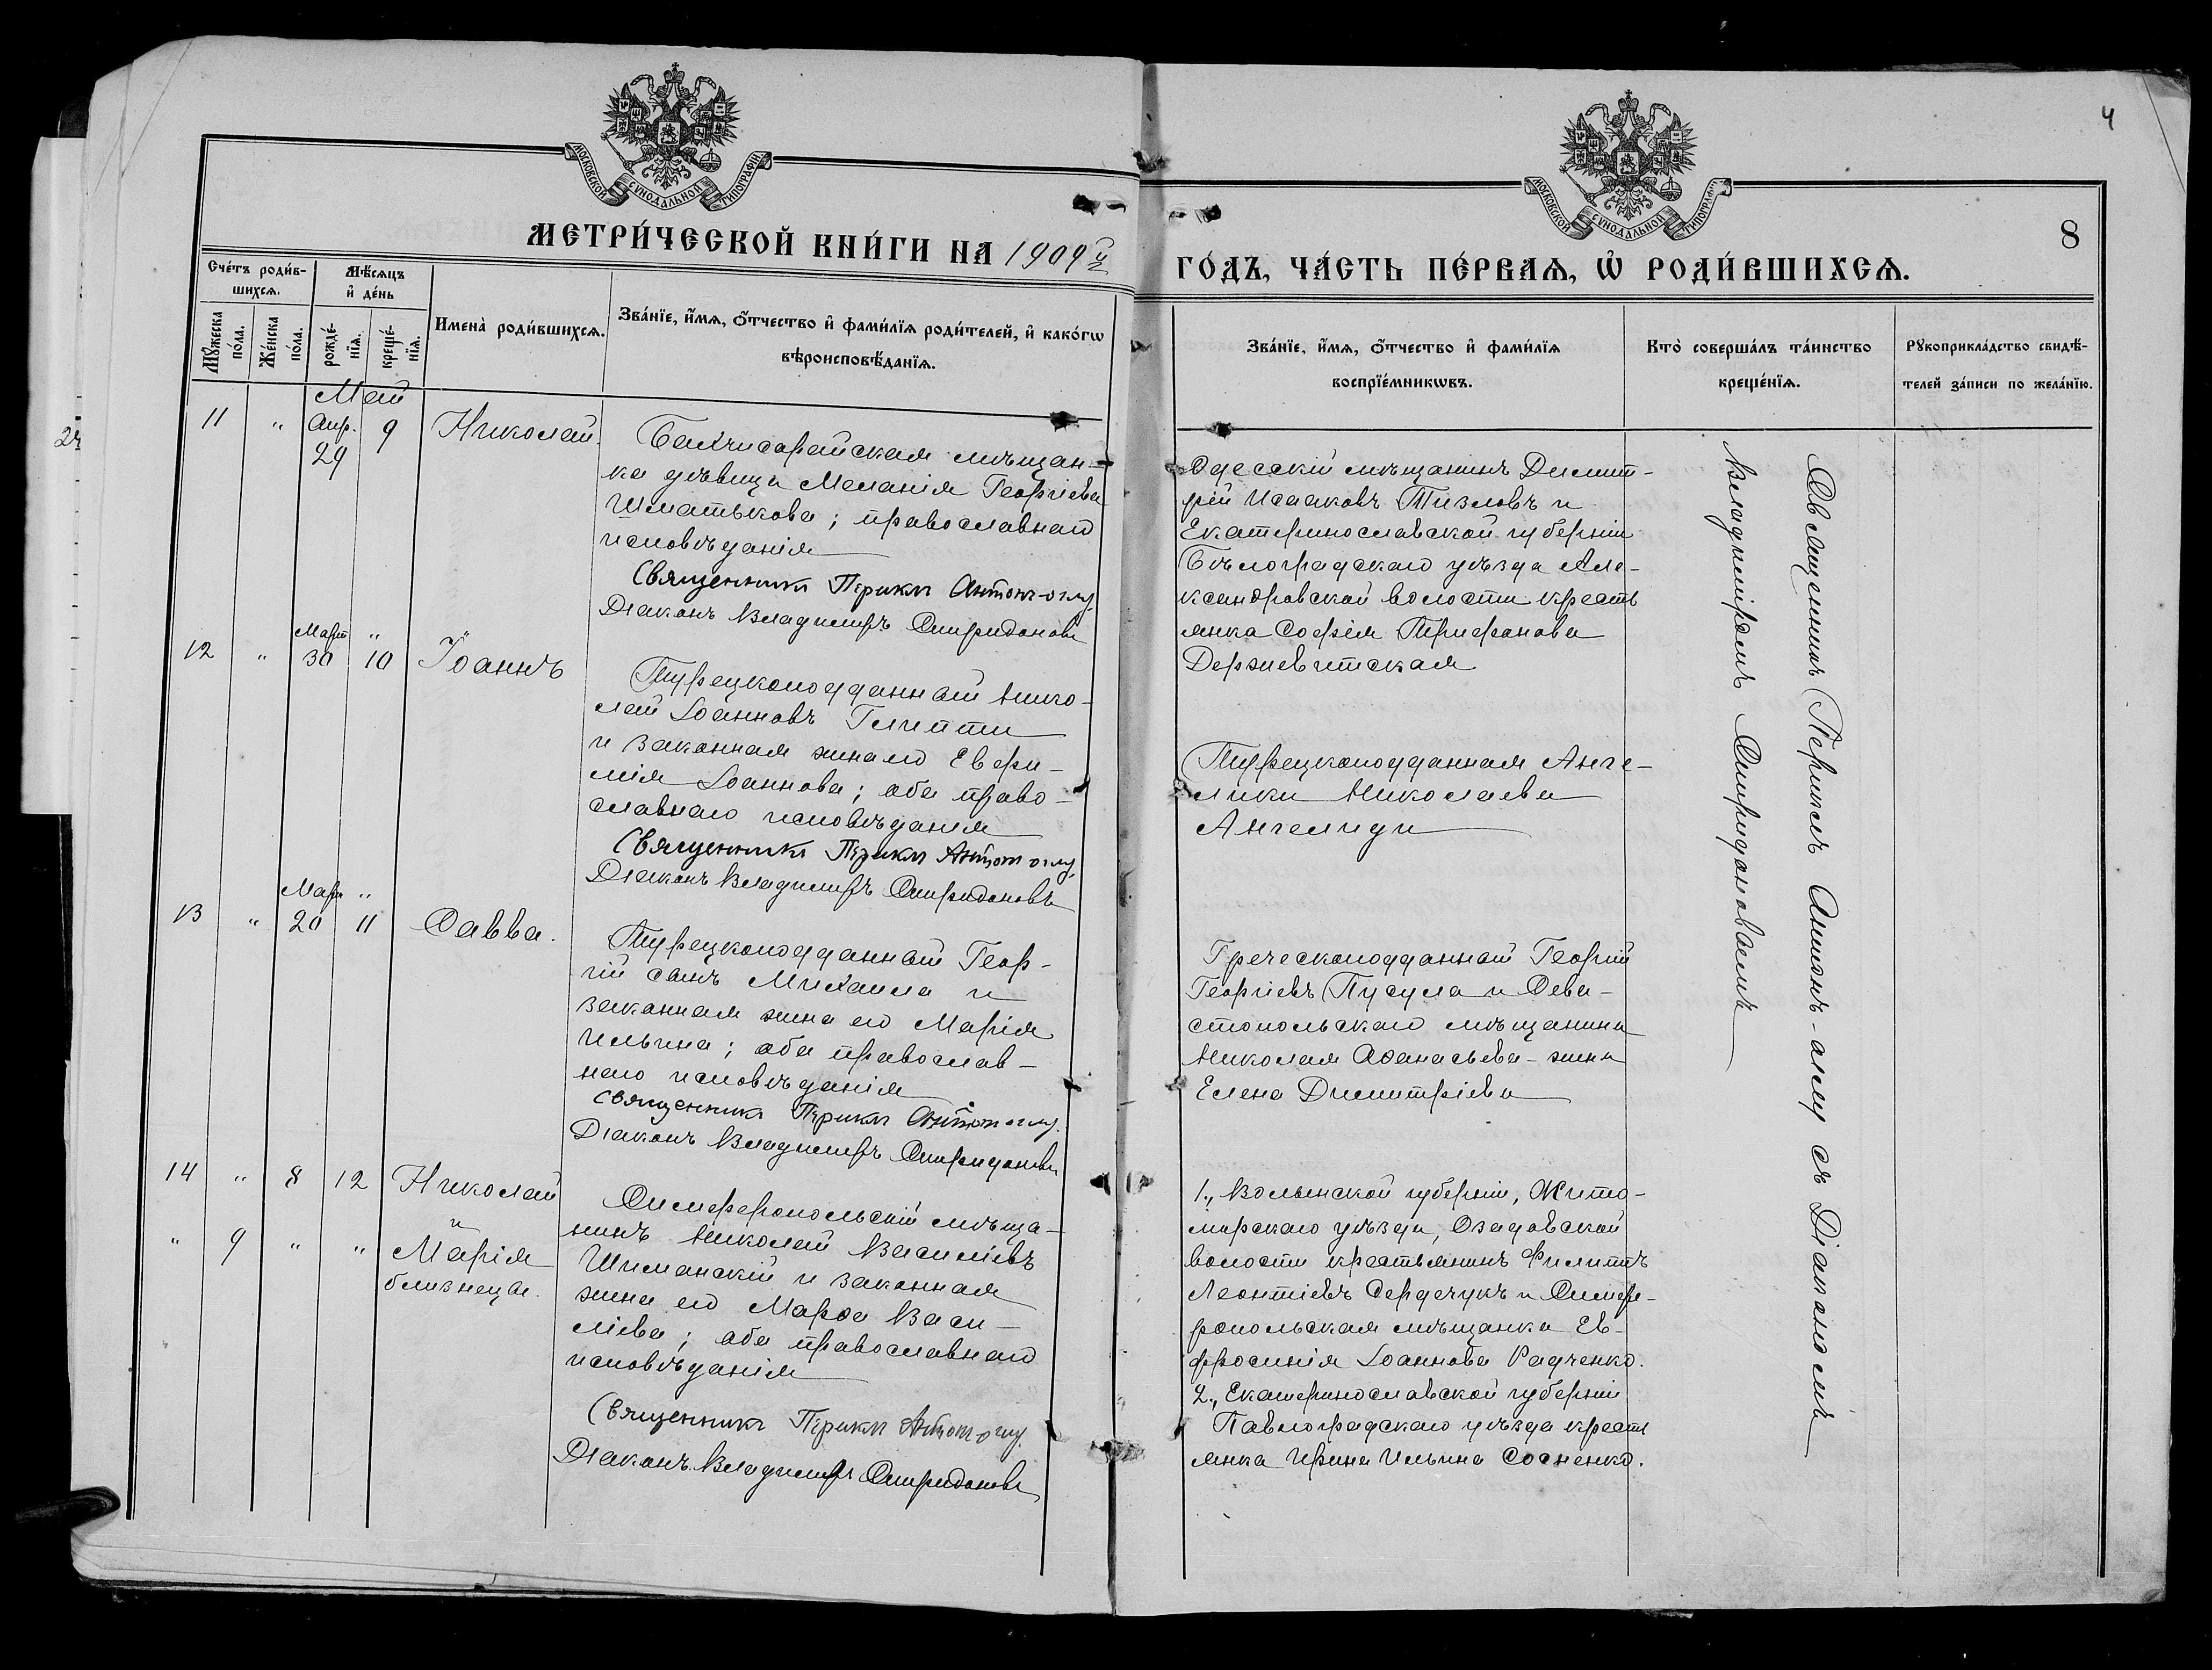 4
8
МОСКОВСКОЙ СѴНОДАЛЬНОЙ ТИПОГРАФІИ
МОСКОВСКОЙ СѴНОДАЛЬНОЙ ТИПОГРАФІИ
МЕТРИ́ЧЕСКОЙ КНИ́ГИ НА 1909й
ГО́ДЪ, ЧА́СТЬ ПЕ́РВАѦ, Ѽ РОДИ́ВШИХСѦ.
Сче́тъ роди́в-
шихсѧ.
Мѣ́сѧцъ
и҆ де́нь
Мꙋ́жеска
по́ла.
Же́нска
по́ла.
рожде́-
нїѧ.
креще́-
нїѧ.
Имена̀ роди́вшихсѧ.
Зва́нїе, и҆́мѧ, ѻ҆́тчество и҆ фами́лїѧ роди́телей, и҆ како́гѡ
вѣроисповѣ́данїѧ.
Зва́нїе, и҆́мѧ, ѻ҆́тчество и҆ фами́лїѧ
воспрїе́мникѡвъ.
Кто̀ соверша́лъ та́инство
креще́нїѧ.
Рꙋкоприкла́дство свидѣ́-
телей за́писи по жела́нїю.
Май
11 " Апр. 29 9 Николай.
Бахчисарайская мѣщан-
ка дѣвица Меланія Георгіева
Шматькова; православнаго
исповѣданія
Священникъ Периклъ Антонъ-оглу.
Діаконъ Владимиръ Спиридоновъ
Одесскій мѣщанинъ Димит-
рій Исааковъ Тизловъ и
Екатеринославской губерніи
Бѣлоградскаго уѣзда Але-
ксандровской волости кресть
янка Софія Трифонова
Держевитская
12 " Март. 30 " 10 Іоаннъ
Турецкоподданный Нико-
лай Іоанновъ
и законная жена его Евфи-
мія Іоаннова; оба право-
славнаго исповѣданія
Священникъ Периклъ Антонъ оглу.
Діаконъ Владимиръ Спиридоновъ
Турецкоподданная Анге-
лики Николаева
Ангелиди
13 " Мар. 20 " 11 Савва.
Турецкоподданный Геор-
гій сынъ Михаила и
законная жена его Марія
Ильина; оба православ-
наго исповѣданія
Священникъ Периклъ Антонъ оглу.
Діаконъ Владимиръ Спиридоновъ
Греческоподданный Георгій
Георгіевъ Пусула и Сева-
стопольскаго мѣщанина
Николая Аѳанасьева - жена
Елена Димитріева
14 " 8 12 Николай
и
" 9 " " Марія
близнецы.
Симферопольскій мѣща-
нинъ Николай Василіевъ
Шиманскій и законная
жена его Марѳа Васи-
ліева; оба православнаго
исповѣданія
Священникъ Периклъ Антонъ-оглу.
Діаконъ Владимиръ Спиридоновъ
1., Волынской губерніи, Жито-
мирскаго уѣзда, Озадовской
волости крестьянинъ Филиппъ
Леонтіевъ Сердечукъ и Симфе-
ропольская мѣщанка Ев-
фросинія Іоаннова Радченко.
2., Екатеринославской губерніи
Павлоградскаго уѣзда кресть
янка Ирина Ильина Сосненко.
Священникъ Периклъ Антонъ-оглу съ Діакономъ
Владиміромъ Спиридоновымъ